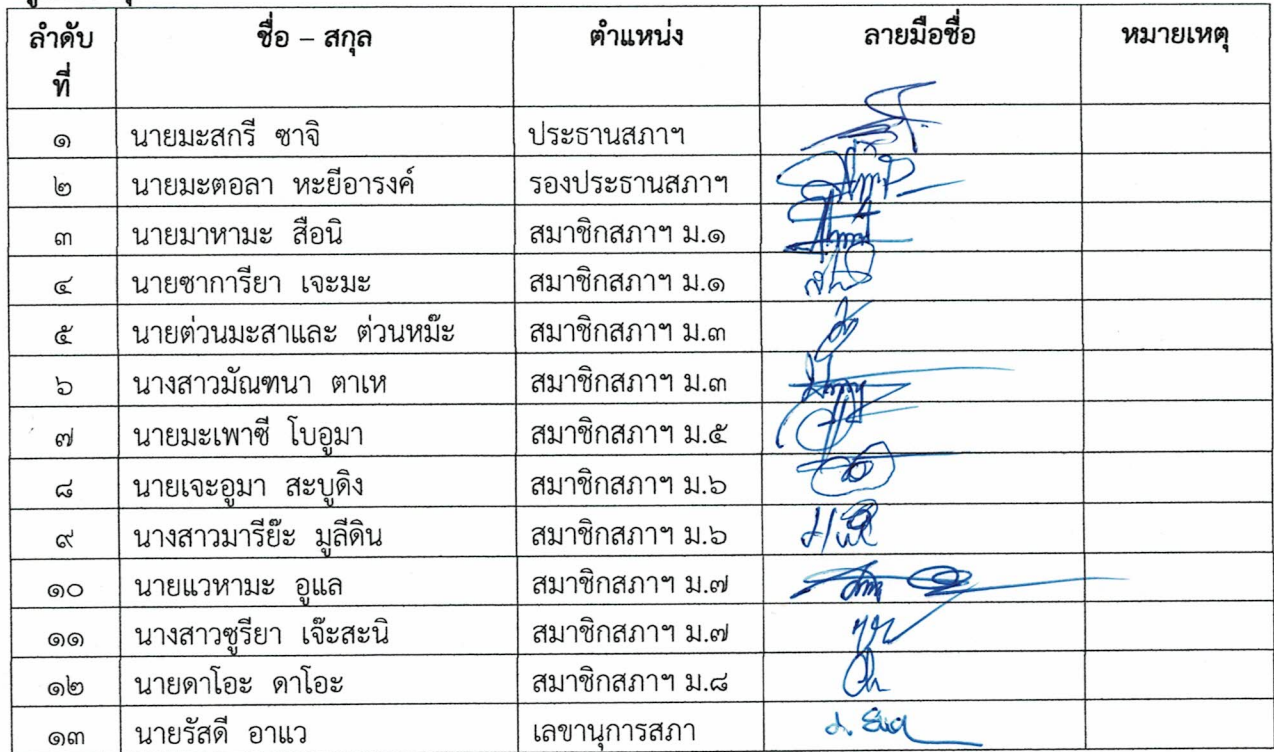 ลำดับที่ ชื่อ – สกุล ตำแหน่ง ลายมือชื่อ หมายเหตุ
๑ นายมะสกรี ซาจิ ประธานสภาฯ
๒ นายมะตอลา หะยีอารงค์ รองประธานสภาฯ
๓ นายมาหามะ สือนิ สมาชิกสภาฯ ม.๑
๔ นายซาการียา เจะมะ สมาชิกสภาฯ ม.๑
๕ นายต่วนมะสาและ ต่วนหม๊ะ สมาชิกสภาฯ ม.๓
๖ นางสาวมัณฑนา ตาเห สมาชิกสภาฯ ม.๓
๗ นายมะเพาซี โบอูมา สมาชิกสภาฯ ม.๕
๘ นายเจะอูมา สะบูดิง สมาชิกสภาฯ ม.๖
๙ นางสาวมารีย๊ะ มูลีดิน สมาชิกสภาฯ ม.๖
๑๐ นายแวหามะ อูแล สมาชิกสภาฯ ม.๗
๑๑ นางสาวซูรียา เจ๊ะสะนิ สมาชิกสภาฯ ม.๗
๑๒ นายดาโอะ ดาโอะ สมาชิกสภาฯ ม.๘
๑๓ นายรัสดี อาแว เลขานุการสภา